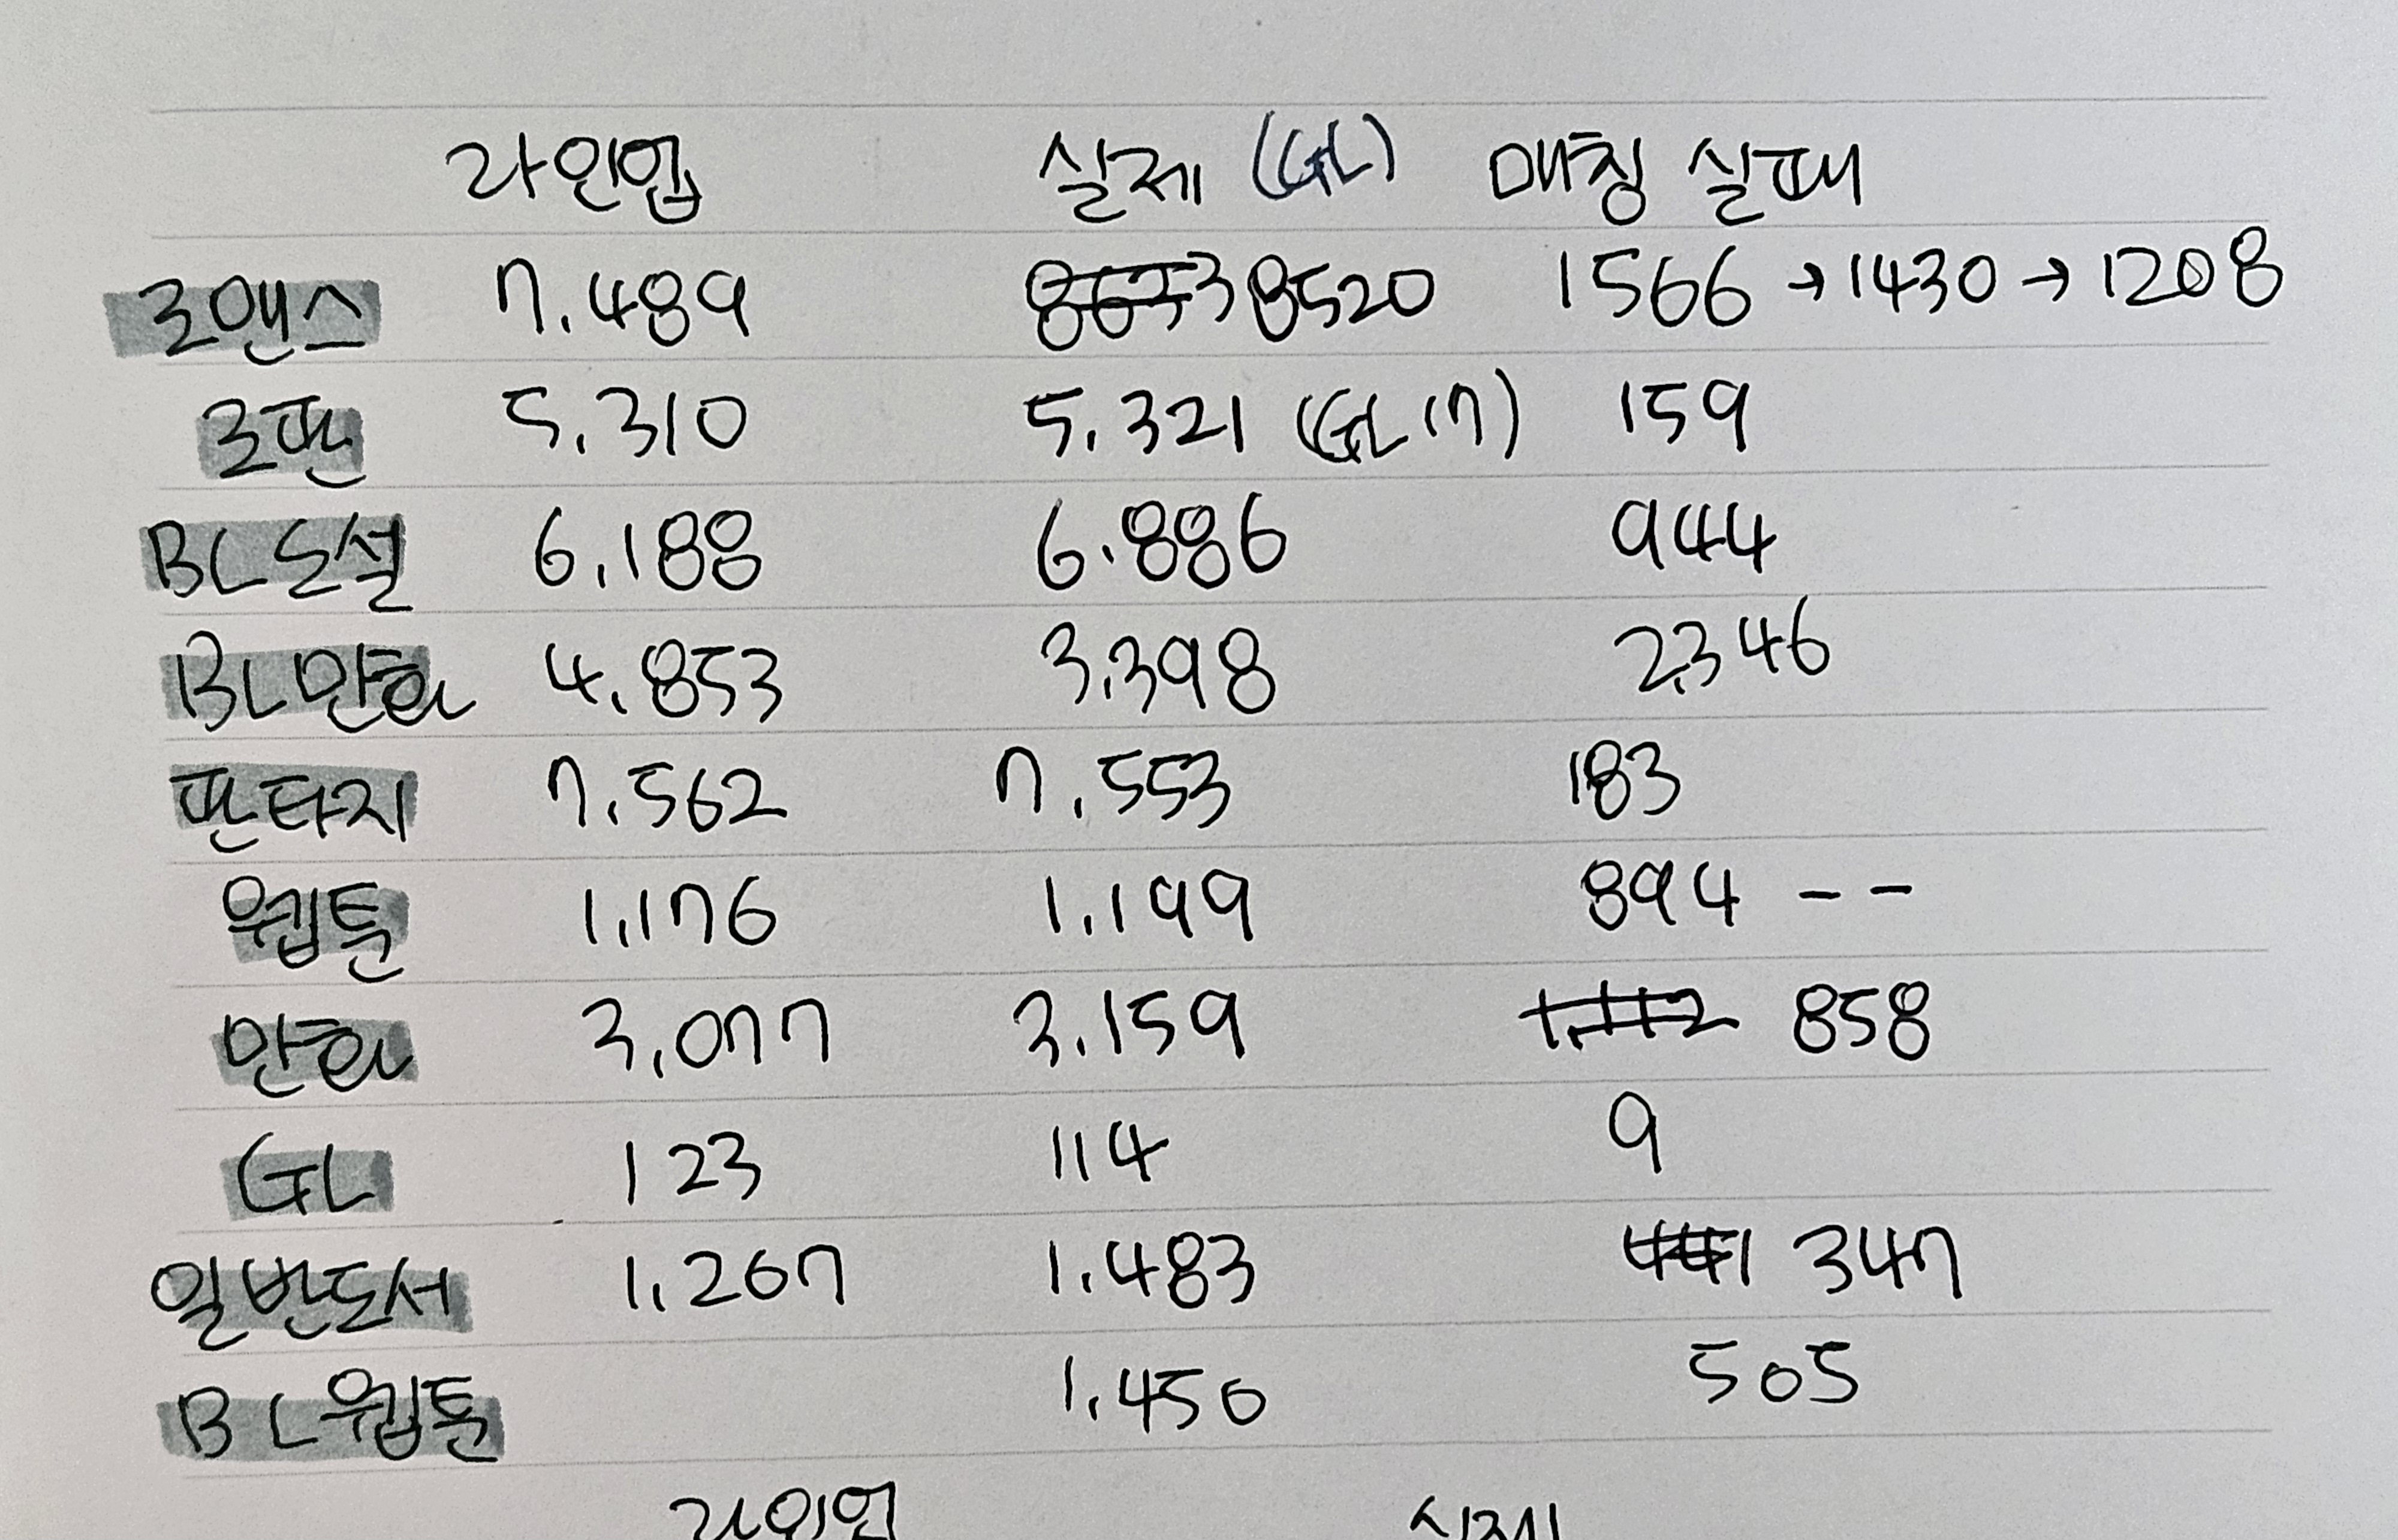 라인업 실제 (GL) 매칭 실패
로맨스 7.489 8520 1566 → 1430 → 1208
로판 5.310 5.321 (GL 17) 159
BL소설 6.188 6.886 944
BL만화 4.853 3.398 2,346
판타지 7.562 7.553 183
웹툰 1,176 1.199 894 - -
만화 3,077 3.159 858
GL 123 114 9
일반도서 1,267 1.483 347
BL웹툰 1.450 505
라인업 실제